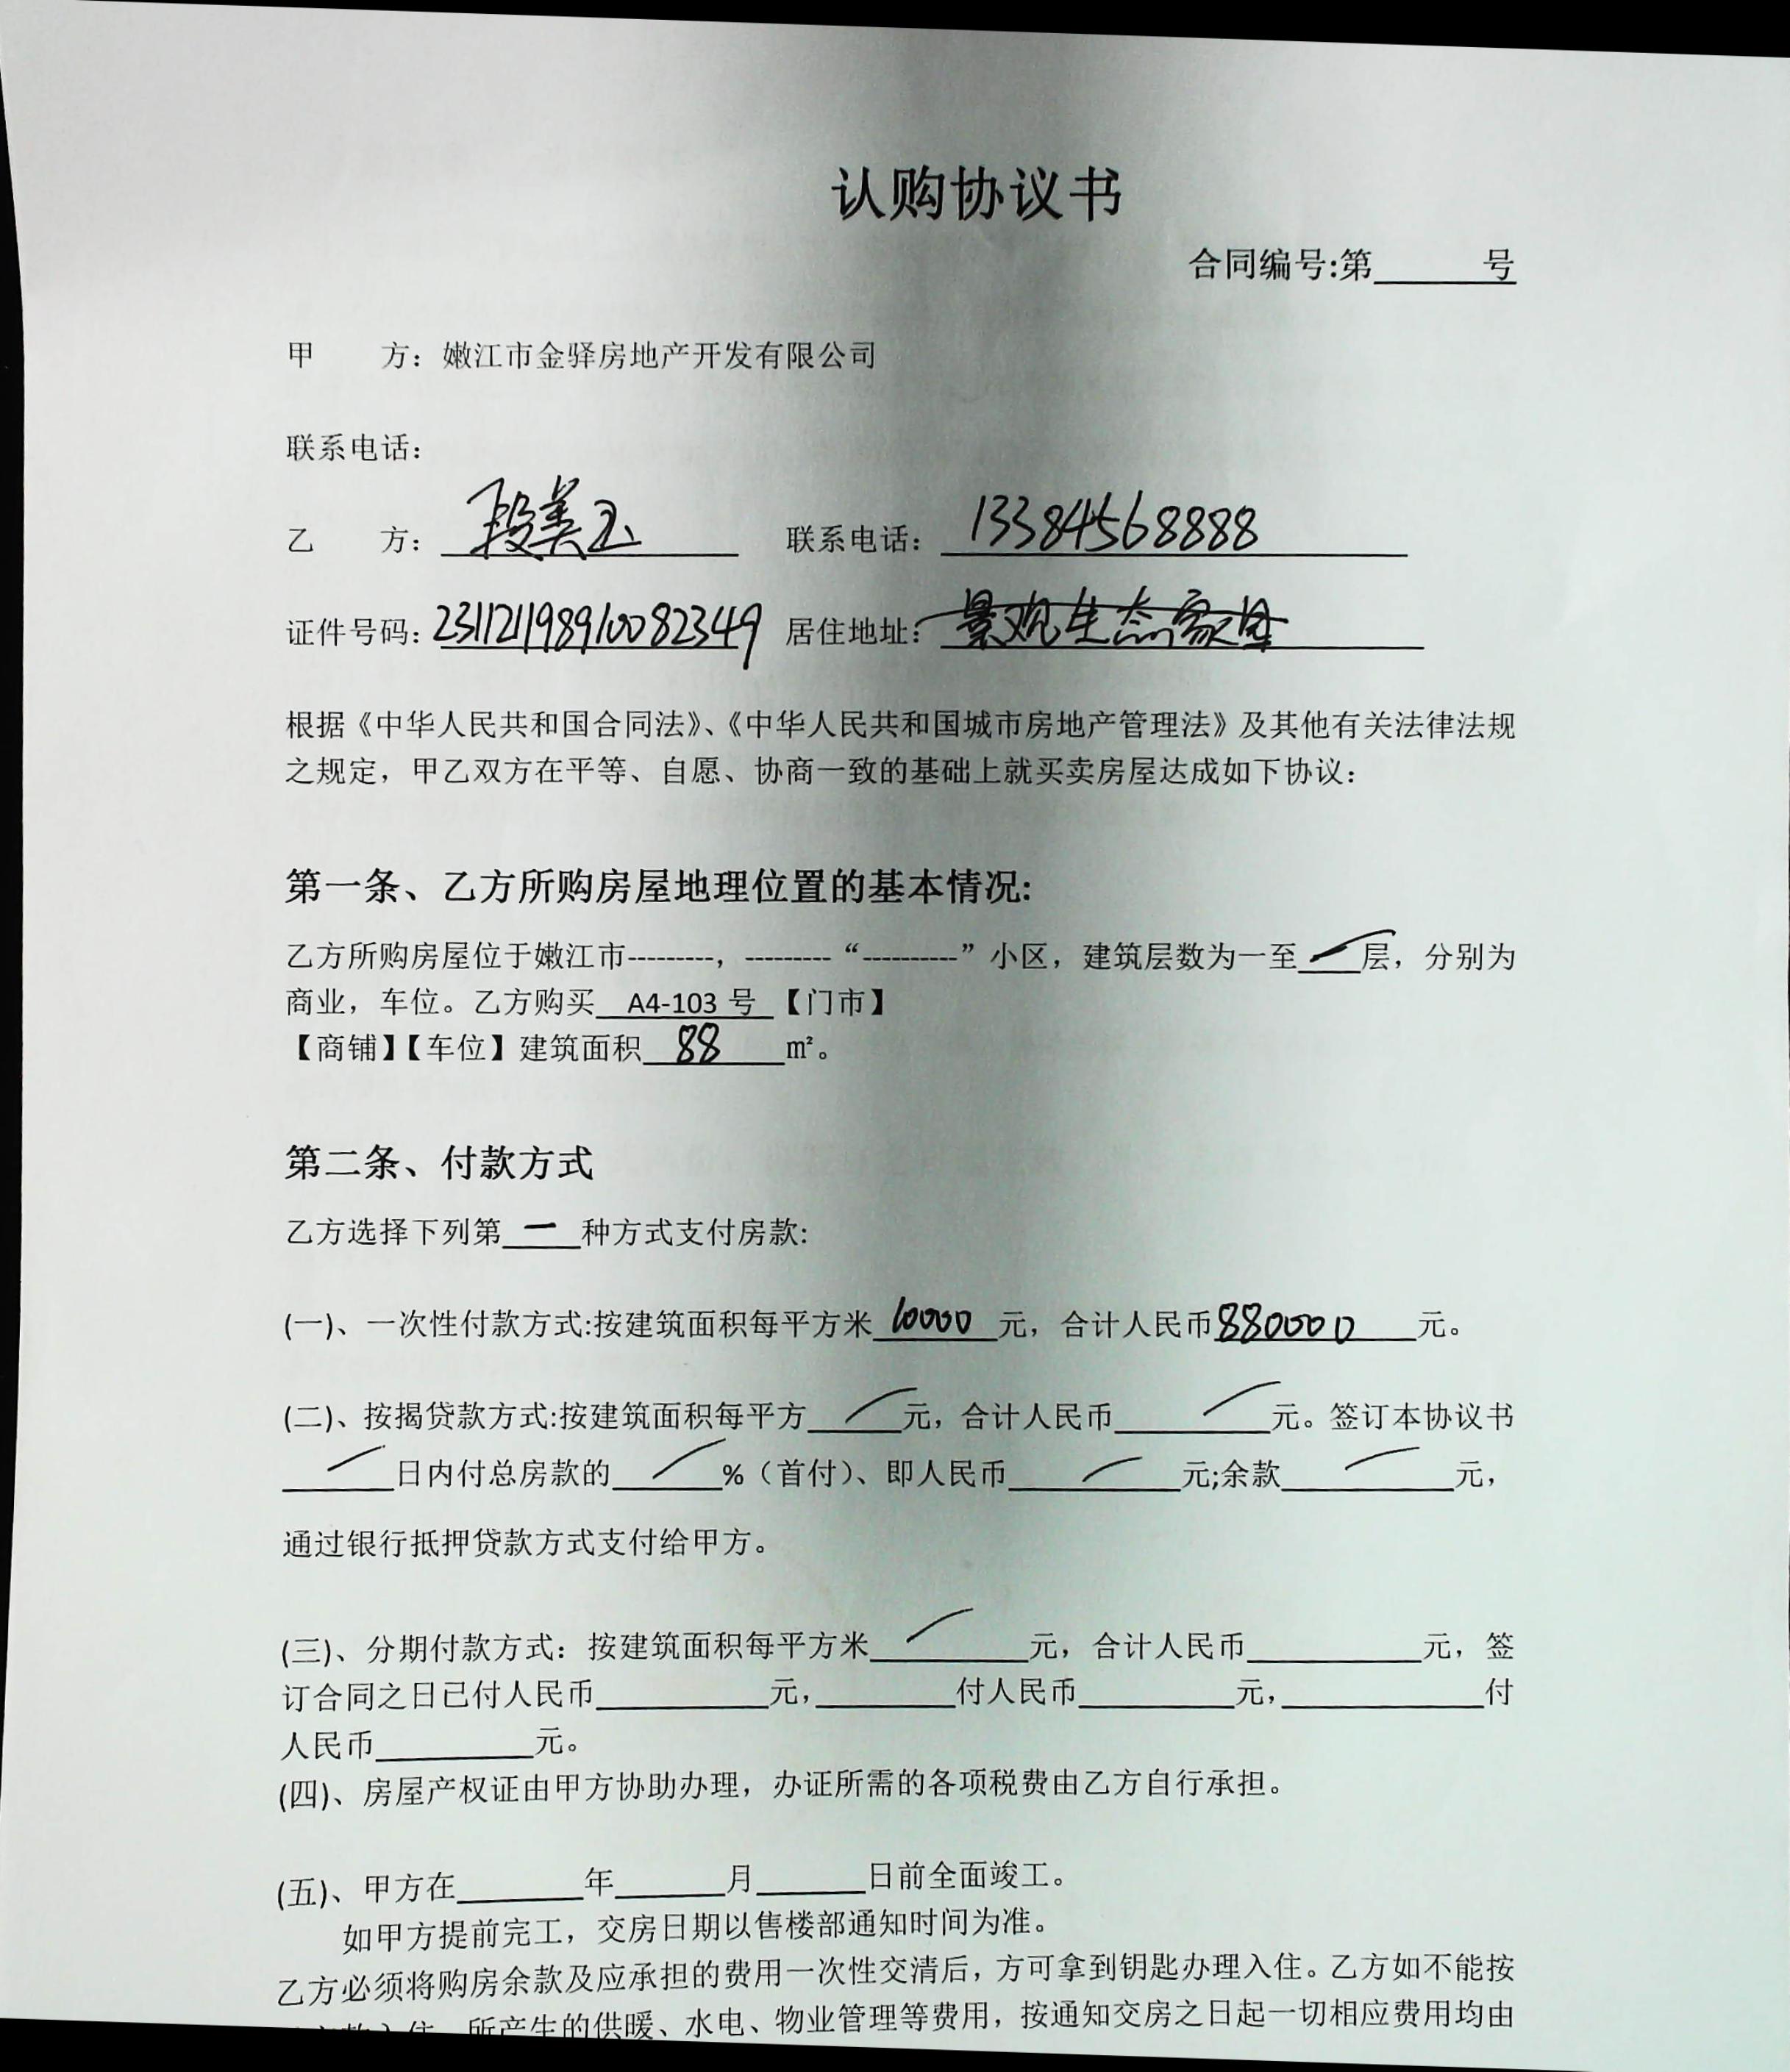 认购协议书
合同编号:第______号
甲 方：嫩江市金驿房地产开发有限公司
联系电话：
乙 方：段美玉 联系电话：13384568888
证件号码：231121198910082349 居住地址：景观生态家园
根据《中华人民共和国合同法》、《中华人民共和国城市房地产管理法》及其他有关法律法规
之规定，甲乙双方在平等、自愿、协商一致的基础上就买卖房屋达成如下协议：
第一条、乙方所购房屋地理位置的基本情况:
乙方所购房屋位于嫩江市---------，---------“----------”小区，建筑层数为一至____层，分别为
商业，车位。乙方购买 A4-103 号 【门市】
【商铺】【车位】建筑面积 88 ㎡。
第二条、付款方式
乙方选择下列第 一 种方式支付房款:
(一)、一次性付款方式:按建筑面积每平方米 10000 元，合计人民币 880000 元。
(二)、按揭贷款方式:按建筑面积每平方 / 元，合计人民币 / 元。签订本协议书
/ 日内付总房款的 / %（首付）、即人民币 / 元;余款 / 元，
通过银行抵押贷款方式支付给甲方。
(三)、分期付款方式：按建筑面积每平方米 / 元，合计人民币__________元，签
订合同之日已付人民币__________元，________付人民币_________元，____________付
人民币_________元。
(四)、房屋产权证由甲方协助办理，办证所需的各项税费由乙方自行承担。
(五)、甲方在_______年______月______日前全面竣工。
如甲方提前完工，交房日期以售楼部通知时间为准。
乙方必须将购房余款及应承担的费用一次性交清后，方可拿到钥匙办理入住。乙方如不能按
所产生的供暖、水电、物业管理等费用，按通知交房之日起一切相应费用均由